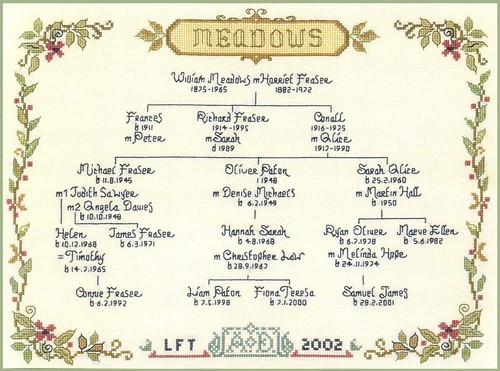 MEADOWS
William Meadows m Harriet Fraser
1875-1965 1882-1972
Frances Richard Fraser Conall
b 1911 1914-1995 1916-1975
m Peter m Sarah m Alice
b 1989 1917-1990
Michael Fraser Oliver Paton Sarah Alice
b 11.8.1945 1948 b 25.2.1960
m1 Judith Sawyer m Denise Michaels m Martin Hall
m2 Angela Davies b 6.2.1949 b 1950
b 10.10.1948
Helen James Fraser Hannah Sarah Ryan Oliver Maeve Ellen
b 10.12.1968 b 6.3.1971 b 4.8.1968 b 6.7.1978 b 5.6.1982
= Timothy m Christopher Low m Melinda Hope
b 14.7.1965 b 28.9.1967 b 24.11.1974
Connie Fraser Liam Paton Fiona Teresa Samuel James
b 6.2.1992 b 7.5.1998 b 7.1.2000 b 28.2.2001
LFT AD 2002